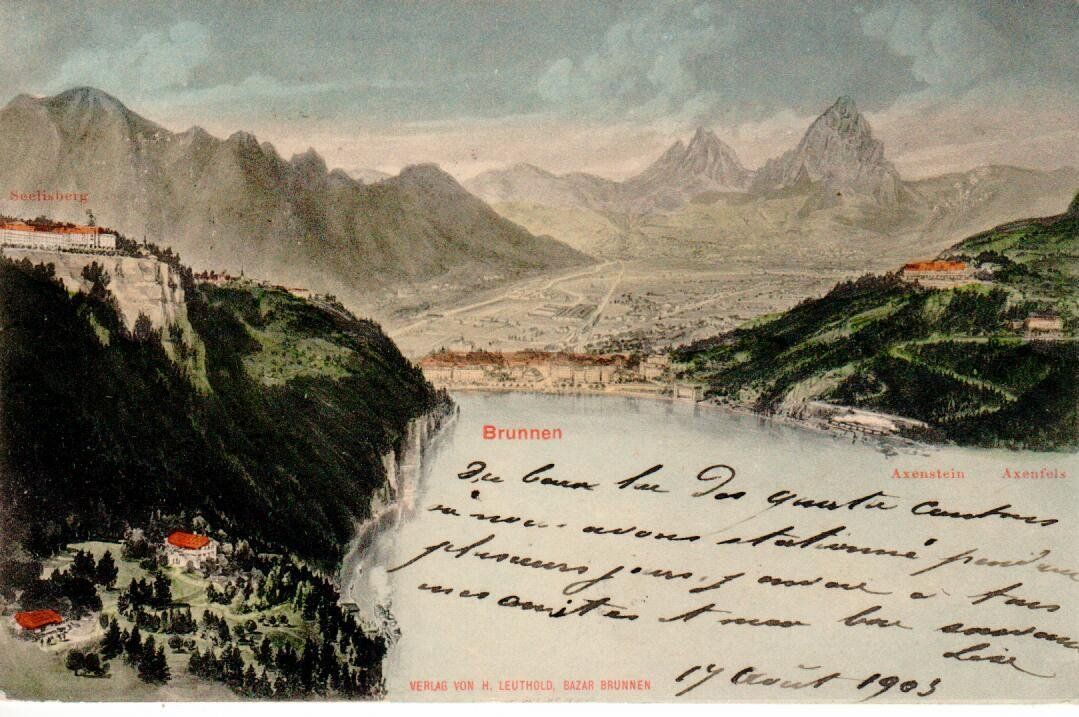 Seelisberg
Brunnen
Axenstein Axenfels
Du beau lac des quatre Cantons
où nous avons stationné
plusieurs jours, j'envoie à tous
mes amitiés et mon bon souvenir
Lise
17 Août 1903
VERLAG VON H. LEUTHOLD, BAZAR BRUNNEN